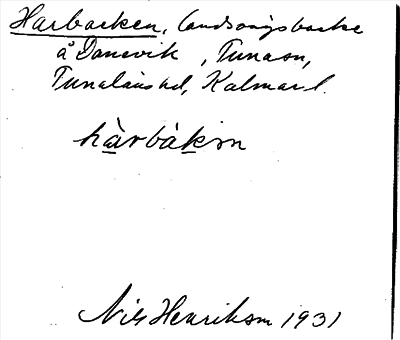 Harbacken, landsvägsbacke
å Danevik, Tunasn,
Tunaläns hd, Kalmar l.
hàrbàkɘn
Nils Henrikson 1931